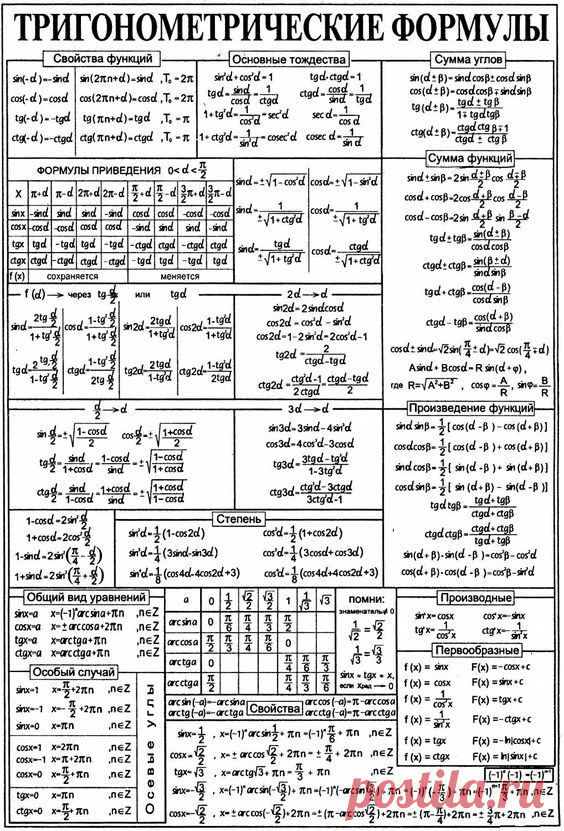 ТРИГОНОМЕТРИЧЕСКИЕ ФОРМУЛЫ
Свойства функций
sin(-α)=-sinα sin(2πn+α)=sinα ,T₀ = 2π
cos(-α)=cosα cos(2πn+α)=cosα ,T₀ = 2π
tg(-α)=-tgα tg(πn+α)=tgα ,T₀ = π
ctg(-α)=-ctgα ctg(πn+α)=ctgα ,T₀ = π
Основные тождества
sin²α+cos²α=1 tgα·ctgα=1
tgα=sinα/cosα=1/ctgα ctgα=cosα/sinα=1/tgα
1+tg²α=1/cos²α=sec²α secα=1/cosα
1+ctg²α=1/sin²α=cosec²α cosec α=1/sinα
Сумма углов
sin(α±β)=sinα cosβ±cosα sinβ
cos(α±β)=cosα cosβ∓sinα sinβ
tg(α±β)=(tgα±tgβ)/(1∓tgα tgβ)
ctg(α±β)=(ctgα ctgβ∓1)/(ctgα±ctgβ)
ФОРМУЛЫ ПРИВЕДЕНИЯ 0<α<π/2
X π+α π-α 2π+α 2π-α π/2+α π/2-α 3/2π+α 3/2π-α
sinx -sinα sinα sinα -sinα cosα cosα -cosα -cosα
cosx -cosα -cosα cosα cosα -sinα sinα sinα -sinα
tgx tgα -tgα tgα -tgα -ctgα ctgα -ctgα ctgα
ctgx ctgα -ctgα ctgα -ctgα -tgα tgα -tgα tgα
f(x) сохраняется меняется
sinα=±√(1-cos²α) cosα=±√(1-sin²α)
sinα=1/(±√(1+ctg²α)) cosα=1/(±√(1+tg²α))
sinα=tgα/(±√(1+tg²α)) cosα=ctgα/(±√(1+ctg²α))
Сумма функций
sinα±sinβ=2sin (α±β)/2 cos (α∓β)/2
cosα+cosβ=2cos (α+β)/2 cos (α-β)/2
cosα-cosβ=2sin (α+β)/2 sin (β-α)/2
tgα±tgβ=sin(α±β)/(cosα cosβ)
ctgα±ctgβ=sin(β±α)/(sinα sinβ)
tgα+ctgβ=cos(α-β)/(cosα sinβ)
ctgα-tgβ=cos(α+β)/(sinα cosβ)
cosα±sinα=√2sin(π/4±α)=√2cos(π/4∓α)
Asinα+Bcosα=R sin(α+φ),
где R=√(A²+B²) , cosφ=A/R, sinφ=B/R
f(α)→ через tg α/2 или tgα
sinα=2tg α/2/(1+tg² α/2) cosα=(1-tg² α/2)/(1+tg² α/2) sin2α=2tgα/(1+tg²α) cos2α=(1-tg²α)/(1+tg²α)
tgα=2tg α/2/(1-tg² α/2) ctgα=(1-tg² α/2)/(2tg α/2) tg2α=2tgα/(1-tg²α) ctg2α=(1-tg²α)/2tgα
2α→α
sin2α=2sinα cosα
cos2α=cos²α-sin²α
cos2α=1-2sin²α=2cos²α-1
tg2α=2/(ctgα-tgα)
ctg2α=(ctg²α-1)/2ctgα (ctgα-tgα)/2
α/2→α
sin α/2=±√((1-cosα)/2) cos α/2=±√((1+cosα)/2)
tg α/2=sinα/(1+cosα)=(1-cosα)/sinα=±√((1-cosα)/(1+cosα))
ctg α/2=sinα/(1-cosα)=(1+cosα)/sinα=±√((1+cosα)/(1-cosα))
3α→α
sin3α=3sinα-4sin³α
cos3α=4cos³α-3cosα
tg3α=(3tgα-tg³α)/(1-3tg²α)
ctg3α=(ctg³α-3ctgα)/(3ctg²α-1)
Произведение функций
sinα sinβ=1/2[cos(α-β)-cos(α+β)]
cosα cosβ=1/2[cos(α-β)+cos(α+β)]
sinα cosβ=1/2[sin(α-β)+sin(α+β)]
cosα sinβ=1/2[sin(α+β)-sin(α-β)]
tgα tgβ=(tgα+tgβ)/(ctgα+ctgβ)
ctgα ctgβ=(ctgα+ctgβ)/(tgα+tgβ)
sin(α+β)·sin(α-β)=cos²β-cos²α
cos(α+β)·cos(α-β)=cos²β-sin²α
1-cosα=2sin² α/2
1+cosα=2cos² α/2
1-sinα=2sin²(π/4-α/2)
1+sinα=2sin²(π/4+α/2)
Степень
sin²α=1/2(1-cos2α) cos²α=1/2(1+cos2α)
sin³α=1/4(3sinα-sin3α) cos³α=1/4(3cosα+cos3α)
sin⁴α=1/8(cos4α-4cos2α+3) cos⁴α=1/8(cos4α+4cos2α+3)
Общий вид уравнений
sinx=a x=(-1)ⁿarcsina+πn ,n∈Z
cosx=a x=±arccosa+2πn ,n∈Z
tgx=a x=arctga+πn ,n∈Z
ctgx=a x=arcctga+πn ,n∈Z
Особый случай
sinx=1 x=π/2+2πn ,n∈Z
sinx=-1 x=-π/2+2πn ,n∈Z
sinx=0 x=πn ,n∈Z
cosx=1 x=2πn ,n∈Z
cosx=-1 x=π+2πn ,n∈Z
cosx=0 x=π/2+πn ,n∈Z
tgx=0 x=πn ,n∈Z
ctgx=0 x=π/2+πn ,n∈Z
Осевые углы
a 0 1/2 √2/2 √3/2 1 1/√3 √3
arcsina 0 π/6 π/4 π/3 π/2
arccosa π/2 π/3 π/4 π/6 0
arctga 0 π/4 π/6 π/3
arcctga π/2 π/4 π/3 π/6
ПОМНИ:
1/√2=√2/2
1/√3=√3/3
Свойства
arcsin(-a)=-arcsina arccos(-a)=π-arccosa
arctg(-a)=-arctga arcctg(-a)=π-arcctga
sinx=1/2 , x=(-1)ⁿarcsin 1/2+πn=(-1)ⁿ π/6+πn ,n∈Z
cosx=√2/2 , x=±arccos √2/2+2πn=±π/4+2πn ,n∈Z
tgx=√3 , x=arctg√3+πn=π/3+πn ,n∈Z
Производные
sin'x=cosx cos'x=-sinx
tg'x=1/cos²x
Первообразные
f(x)=sinx F(x)=-cosx+c
f(x)=cosx F(x)=sinx+c
f(x)=1/cos²x F(x)=tgx+c
f(x)=1/sin²x F(x)=-ctgx+c
f(x)=tgx F(x)=-ln|cosx|+c
f(x)=ctgx F(x)=ln|sinx|+c
postila.ru